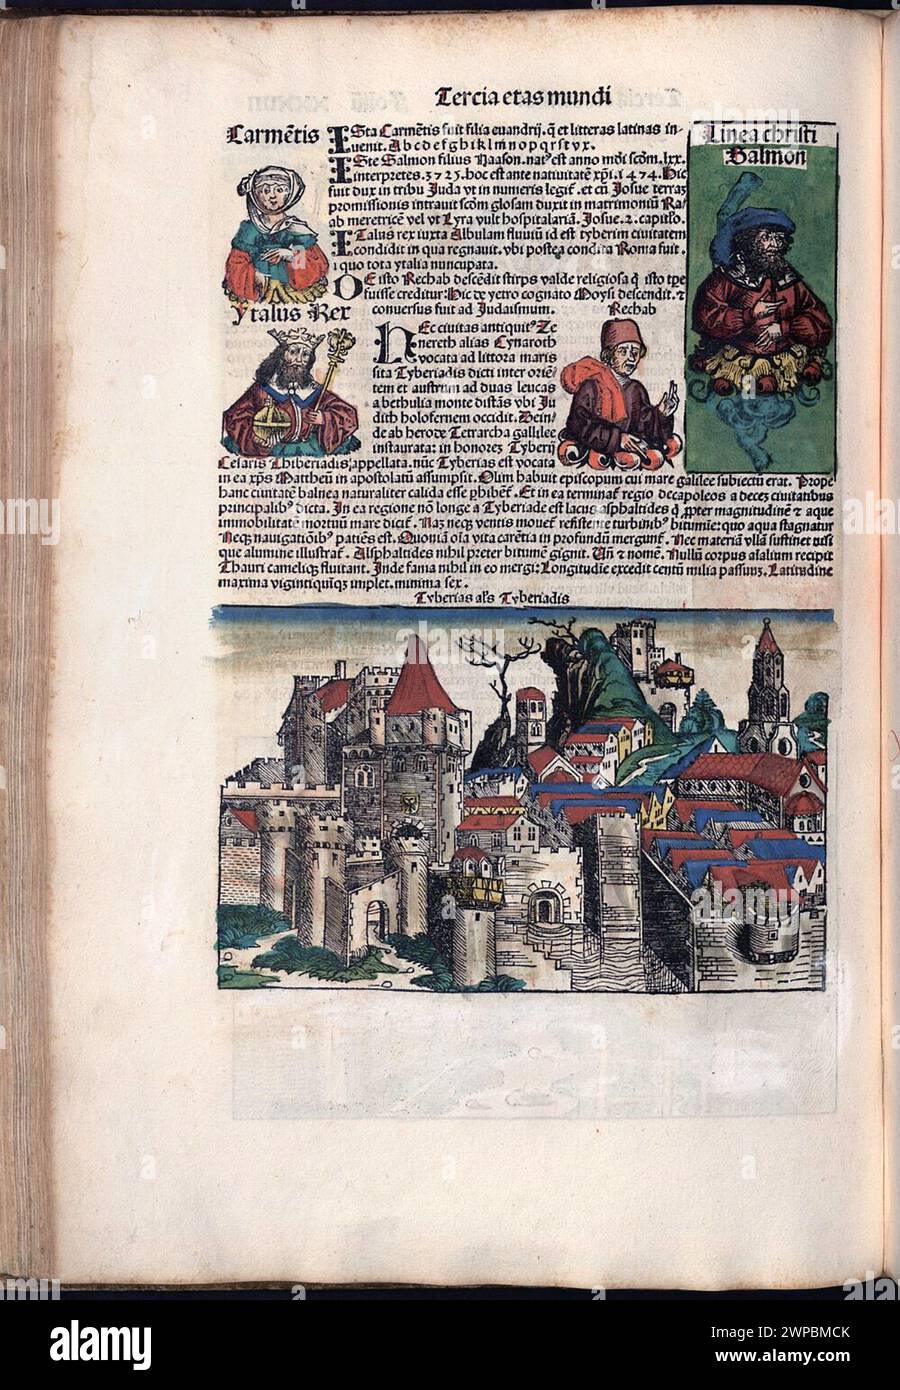 Tercia etas mundi
Carmẽtis
ISta Carmẽtis fuit filia euandrij. q̃ et litteras latinas in-
uenit. A b c d e f g h i k l m n o p q r s t v x.
ISte Salmon filius Naason. nat⁹ est anno mũdi scõm. lxx.
interpretes. 3725. hoc est ante natiuitatẽ xp̃i. 1474. Hic
fuit dux in tribu Juda vt in numeris legit̃. et cũ Josue terraʒ
promissionis intrauit scõm glosam duxit in matrimoniũ Ra-
ab meretricẽ vel vt Lyra vult hospitalariã. Josue. 2. capitlo.
ITalus rex iuxta Albulam fluuiũ id est tyberim ciuitatem
condidit in qua regnauit. vbi postea condita Roma fuit.
a quo tota ytalia nuncupata.
Linea christi
Salmon
DE isto Rechab descẽdit stirps valde religiosa q̃ isto tp̃e
fuisse creditur: Hic de yetro cognato Moysi descendit. ⁊
conuersus fuit ad Judaismum.
Ytalus Rex
Rechab
HEc ciuitas antiquit⁹ Ze
nereth alias Cynaroth
vocata ad littora maris
sita Tyberiadis dicti inter oriẽ-
tem et austrum ad duas leucas
a bethulia monte distãs vbi Ju
dith holofernem occidit. Dein-
de ab herode Tetrarcha gallilee
instaurata: in honoreʒ Tyberij
Cesaris Thiberiadis appellata. nũc Tyberias est vocata
in ea xp̃s Mattheũ in apostolatũ assumpsit. Olim habuit episcopum cui mare galilee subiectũ erat. Prope
hanc ciuitatẽ balnea naturaliter calida esse ꝑhibent̃. Et in ea terminat̃ regio decapoleos a deceʒ ciuitatibus
principalib⁹ dicta. In ea regione nõ longe a Tyberiade est lacus asphaltides q̃ ꝓpter magnitudinẽ ⁊ aque
immobilitatẽ mortuũ mare dicit̃. Naʒ neqʒ ventis mouet̃ resistente turbinib⁹ bitumie: quo aqua stagnatur
Neqʒ nauigatiõib⁹ patiẽs est. Quoniã oĩa vita carẽtia in profundũ mergunt̃. Nec materiã vllã sustinet nisi
que alumine illustrat̃. Asphaltides nihil preter bitumẽ gignit. Uñ ⁊ nomẽ. Nullũ corpus aĩalium recipit
Thauri cameliqʒ fluitant. Inde fama nihil in eo mergi: Longitudĩe excedit centũ milia passuuʒ. Latitudine
maxima vigintiquinqʒ implet. minima sex.
Tyberias aľs Tyberiadis
alamy
alamy
Image ID: 2WPBMCK
www.alamy.com